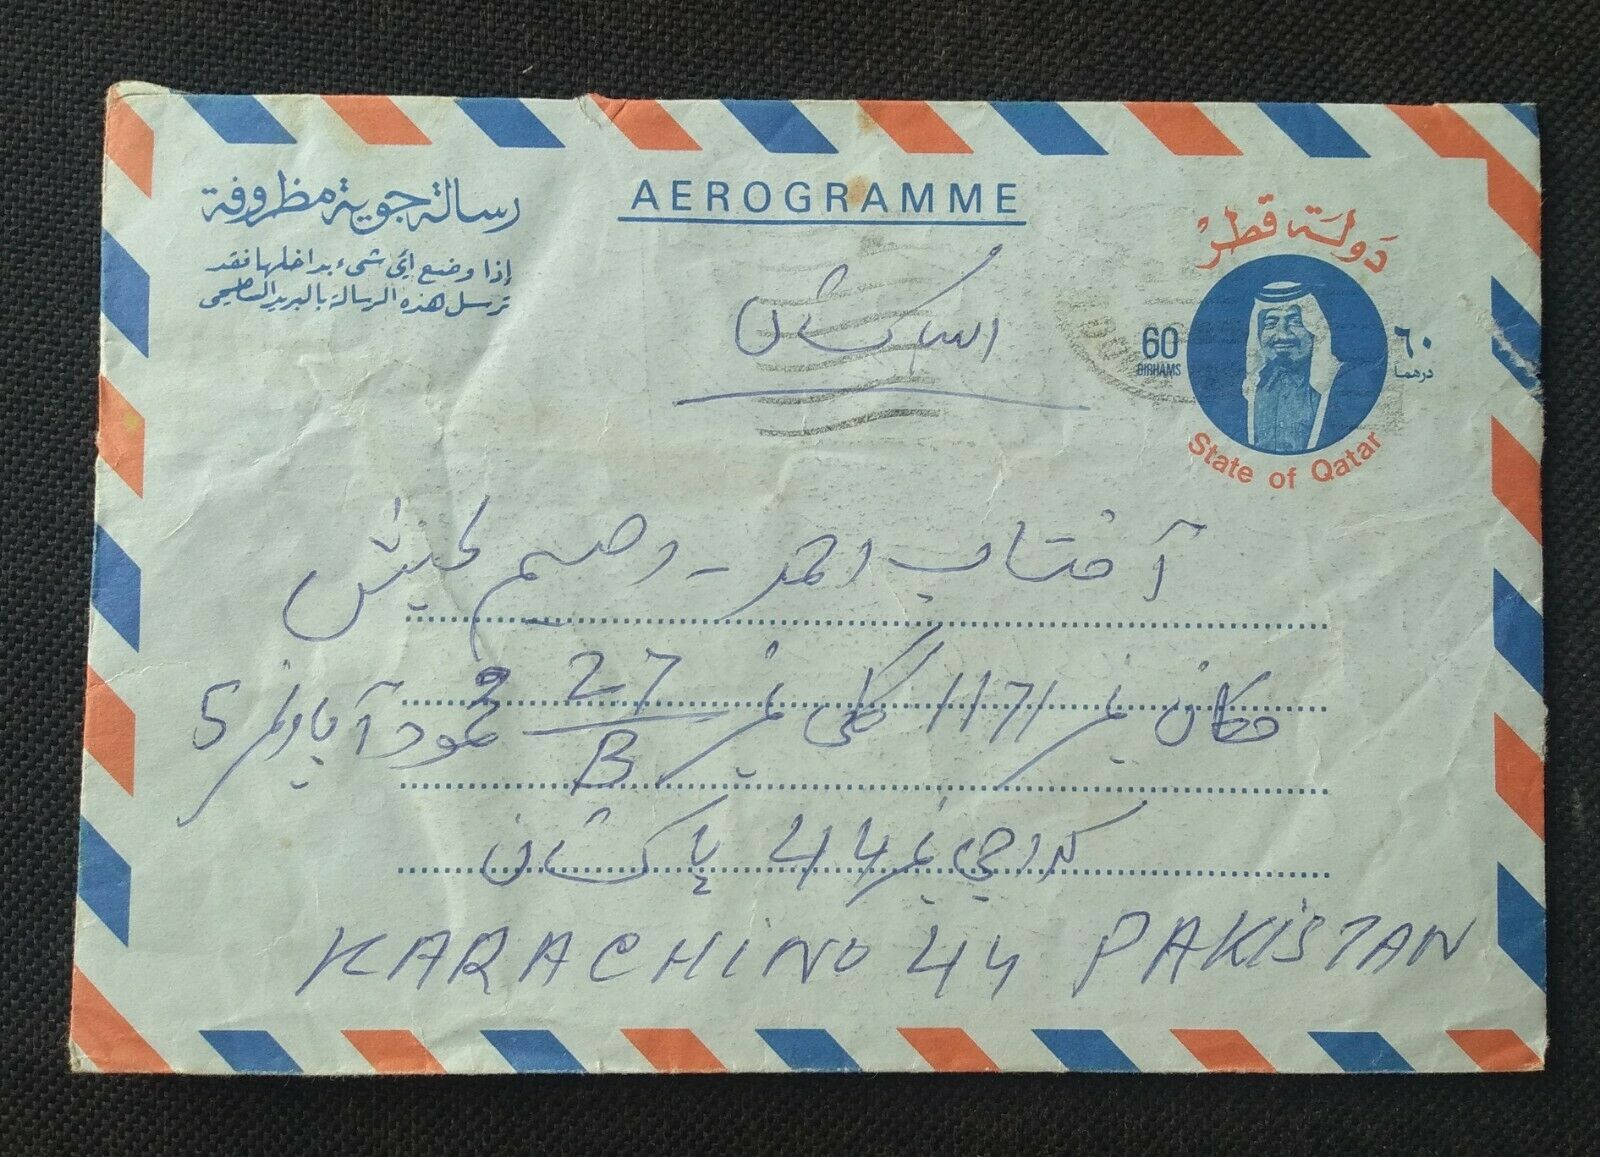 رسالة جوية مظروفة
إذا وضع أي شيء بداخلها فقد
ترسل هذه الرسالة بالبريد السطحي
AEROGRAMME
دولة قطر
60
DIRHAMS
٦٠
درهما
State of Qatar
الباكستان
آفتاب احمد - رحیم بخش
مکان نمبر 1171 گلی نمبر 27/B محمود آباد نمبر 5
کراچی نمبر 44 پاکستان
KARACHI NO 44 PAKISTAN